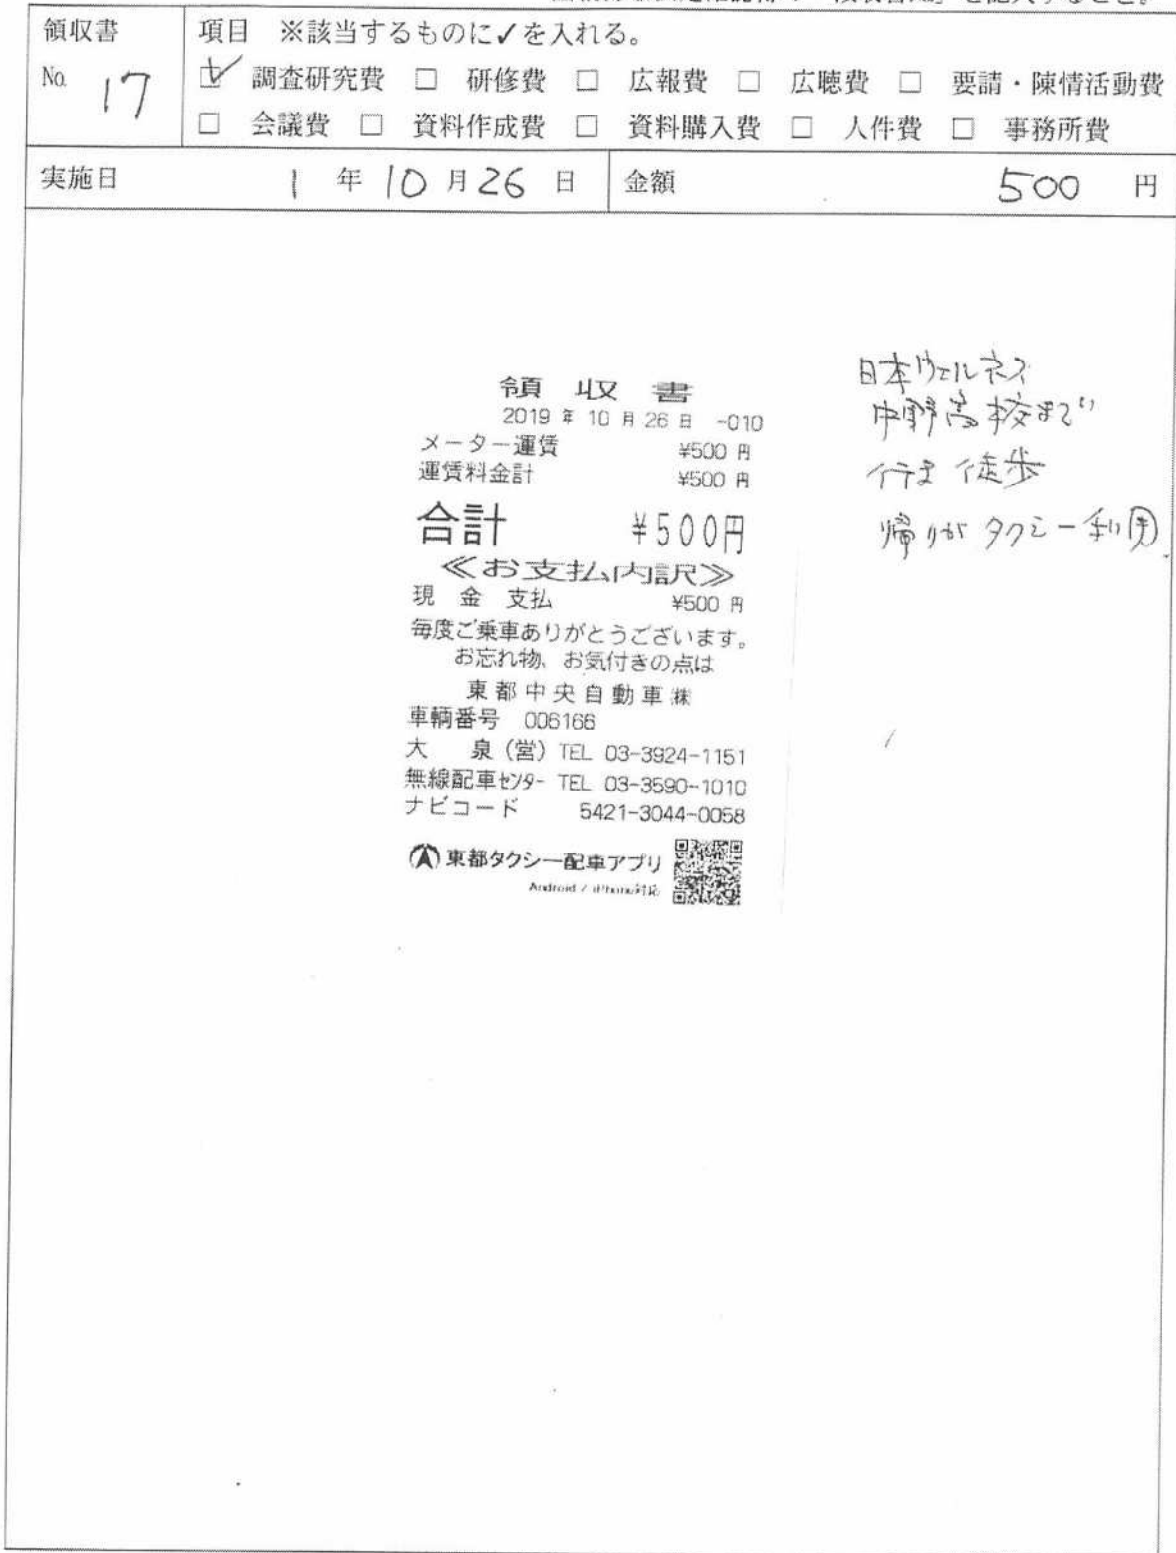 領収書
No. 17
項目 ※該当するものに✓を入れる。
☑ 調査研究費 □ 研修費 □ 広報費 □ 広聴費 □ 要請・陳情活動費
□ 会議費 □ 資料作成費 □ 資料購入費 □ 人件費 □ 事務所費
実施日 1 年 10 月 26 日 金額 500 円
領収書
2019 年 10 月 26 日 -010
メーター運賃 ¥500 円
運賃料金計 ¥500 円
合計 ¥500円
≪お支払内訳≫
現 金 支払 ¥500 円
毎度ご乗車ありがとうございます。
お忘れ物、お気付きの点は
東都中央自動車㈱
車輌番号 006166
大 泉(営) TEL 03-3924-1151
無線配車センター TEL 03-3590-1010
ナビコード 5421-3044-0058
東都タクシー配車アプリ
Android / iPhone対応
日本ウェルネス
中野高校まで
行き 徒歩
帰りが タクシー利用